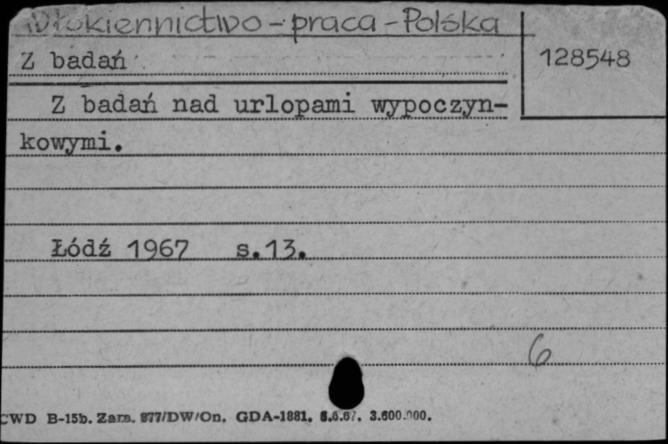 Włókiennictwo - praca - Polska
Z badań
128548
Z badań nad urlopami wypoczyn-
kowymi.
Łódź 1967 s.13.
6
CWD B-15b. Zam. 877/DW/On. GDA-1881. 6.6.67. 3.600.000.